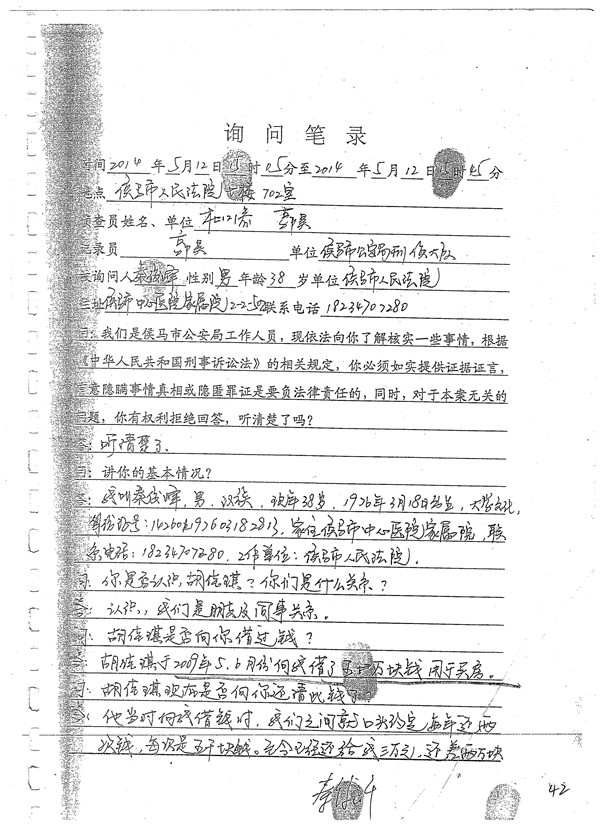 询问笔录
时间 2014 年 5 月 12 日 15 时 05 分至 2014 年 5 月 12 日 15 时 45 分
地点 侯马市人民法院七楼 702室
侦查员姓名、单位
记录员 单位 侯马市公安局刑侦大队
被询问人 秦俊晖 性别 男 年龄 38 岁 单位 侯马市人民法院
住址 侯马市中心医院家属院 2-2-502 联系电话 18234707280
问：我们是侯马市公安局工作人员，现依法向你了解核实一些事情，根据
《中华人民共和国刑事诉讼法》的相关规定，你必须如实提供证据证言，
有意隐瞒事情真相或隐匿罪证是要负法律责任的，同时，对于本案无关的
问题，你有权利拒绝回答，听清楚了吗？
答：听清楚了.
问：讲你的基本情况？
答：我叫秦俊晖，男，汉族，现年38岁，1976年3月18日出生，大学文化，
身份证号：142601197603182813，家住侯马市中心医院家属院，联
系电话：18234707280，工作单位：侯马市人民法院.
问：你是否认识胡佳琪？你们是什么关系？
答：认识，我们是朋友及同事关系.
问：胡佳琪是否向你借过钱？
答：胡佳琪于2009年5、6月份向我借了万块钱用于买房。
问：胡佳琪现在是否向你还清此钱了？
答：他当时向我借钱时，我们之间口头约定每年还两
次钱，每次是五千块钱。至今已经还给我三万元，还差两万块
42